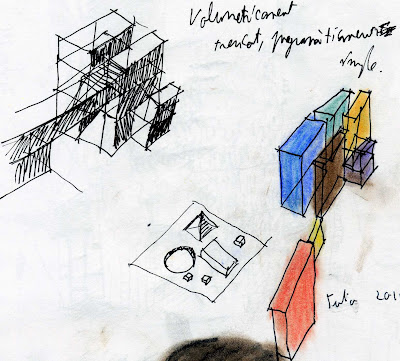 Volumetricament
trencat, programàticament
simple.
201